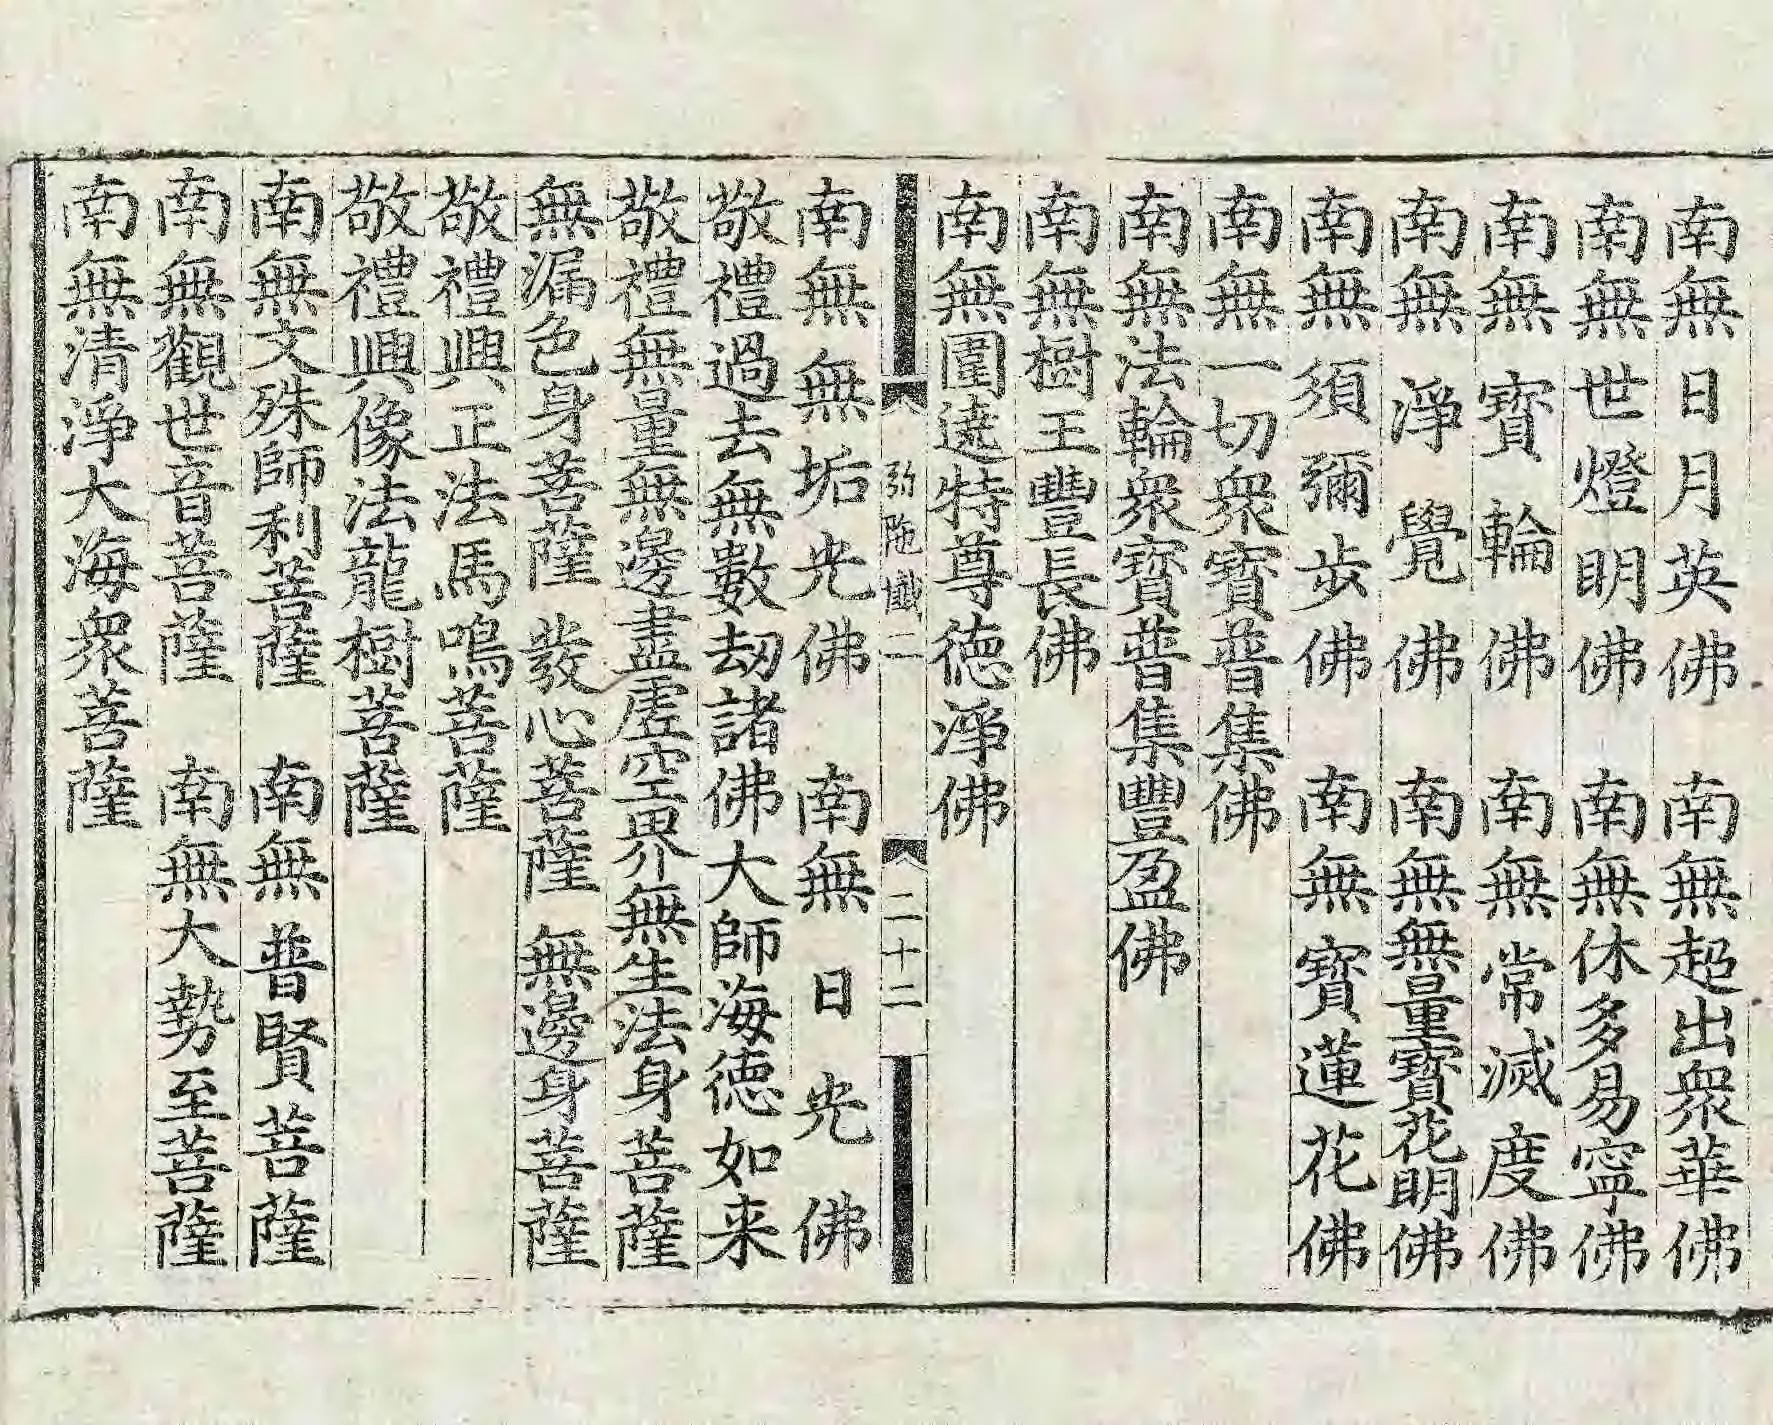 南無日月英佛　南無超出衆華佛
南無世燈明佛　南無休多易寧佛
南無寳輪佛　南無常滅度佛
南無淨覺佛　南無無量寳花明佛
南無須彌步佛　南無寳蓮花佛
南無一切衆寳普集佛
南無法輪衆寳普集豐盈佛
南無樹王豐長佛
南無圍遶特尊德淨佛
弥陁懺二　二十二
南無無垢光佛　南無日光佛
敬禮過去無數劫諸佛大師海德如来
敬禮無量無邊盡虛空界無生法身菩薩
無漏色身菩薩　發心菩薩　無邊身菩薩
敬禮興正法馬鳴菩薩
敬禮興像法龍樹菩薩
南無文殊師利菩薩　南無普賢菩薩
南無觀世音菩薩　南無大勢至菩薩
南無清淨大海衆菩薩